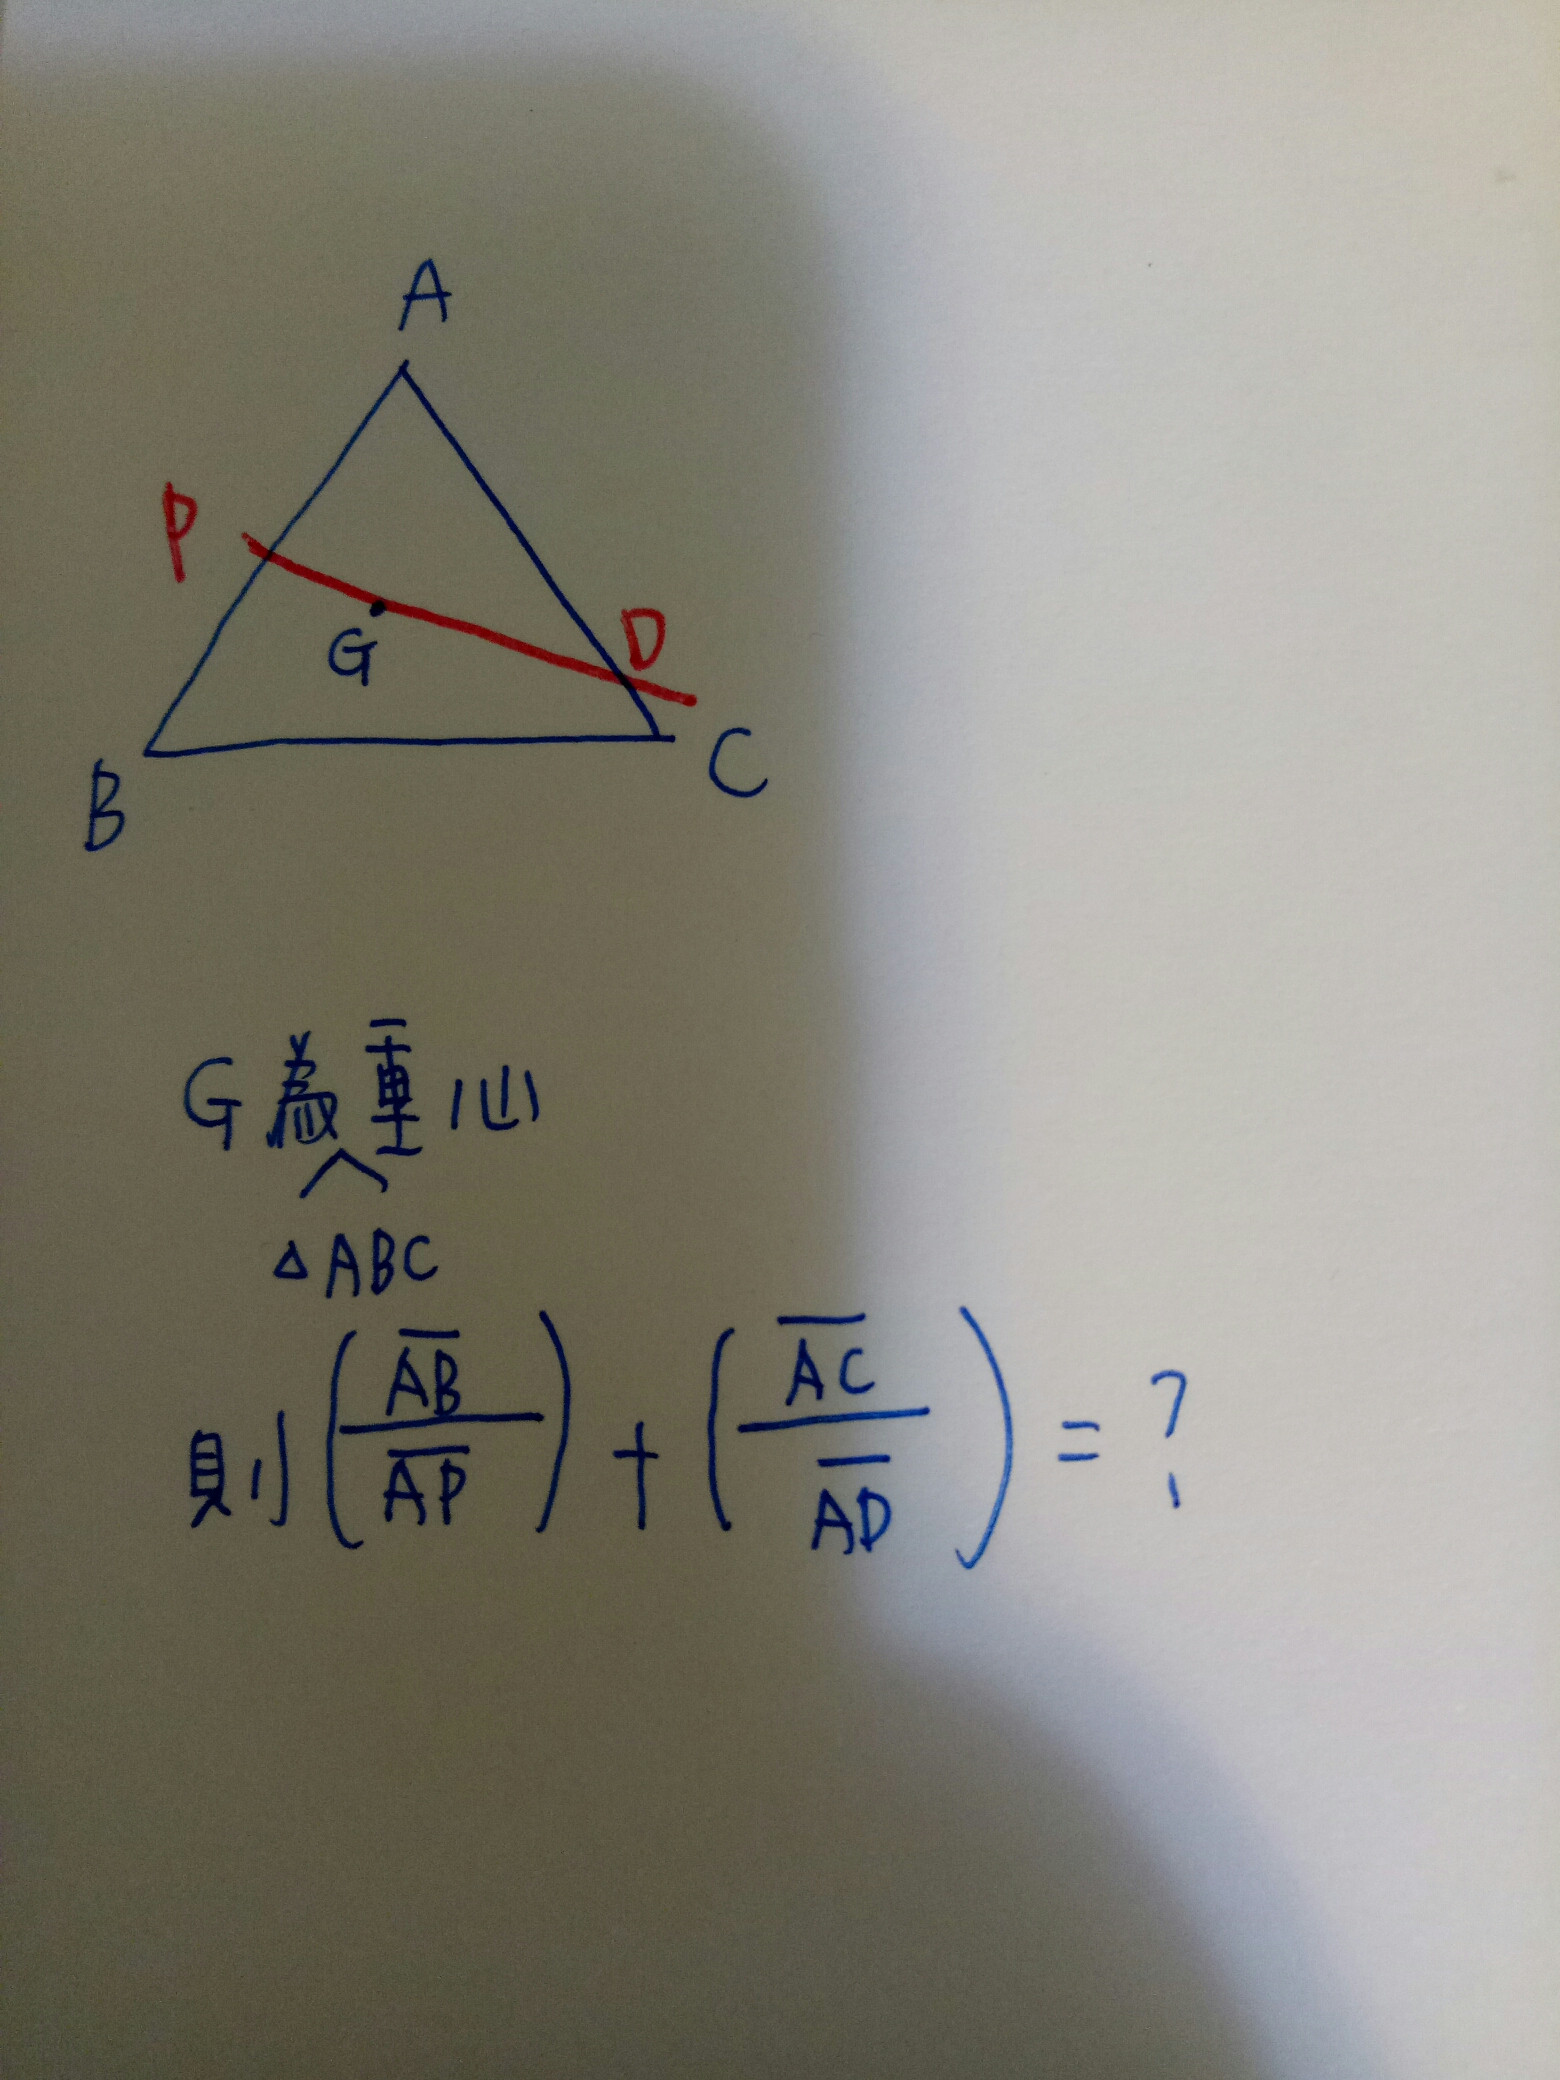 A
P
D
G
B
C
G為重心
△ABC
則(AB/AP)+(AC/AD)=?